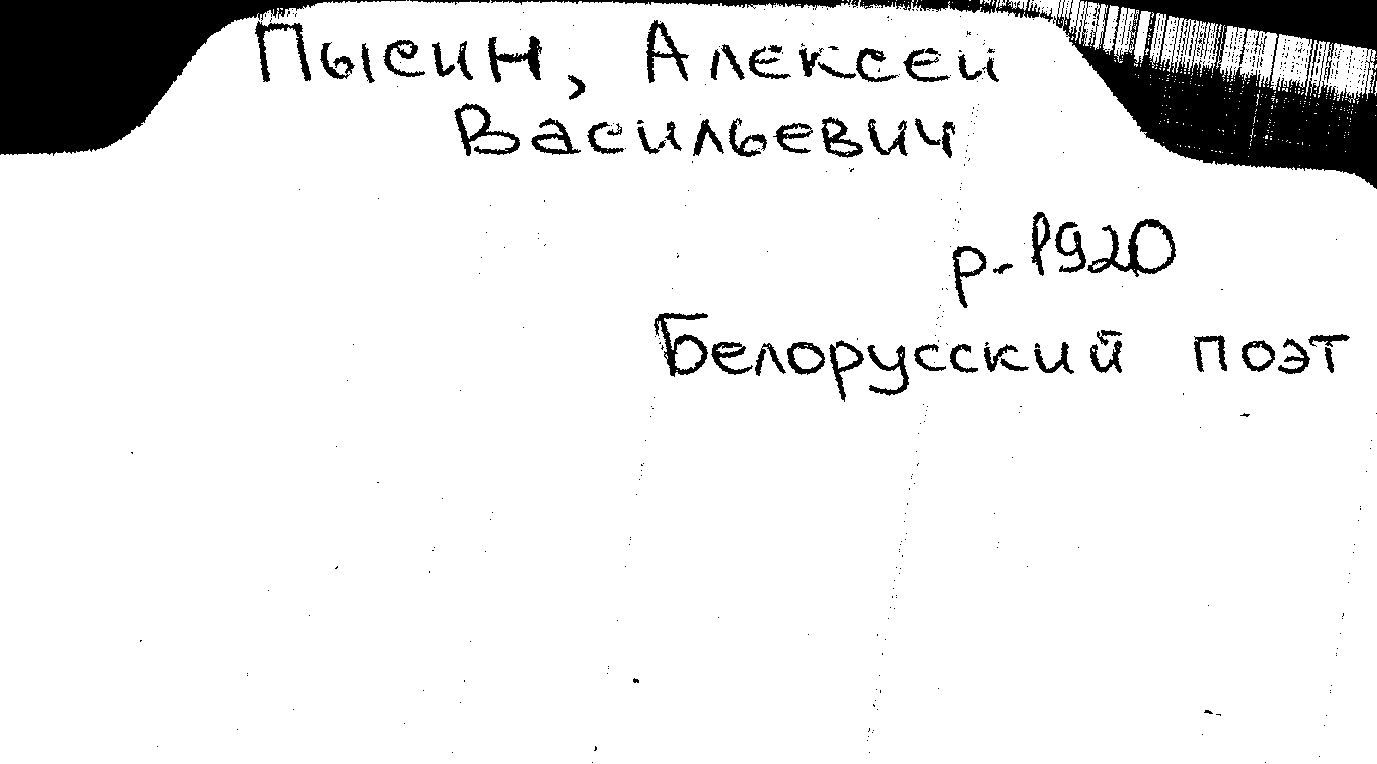 Пысин, Алексей
Васильевич
р. 1920
Белорусский поэт